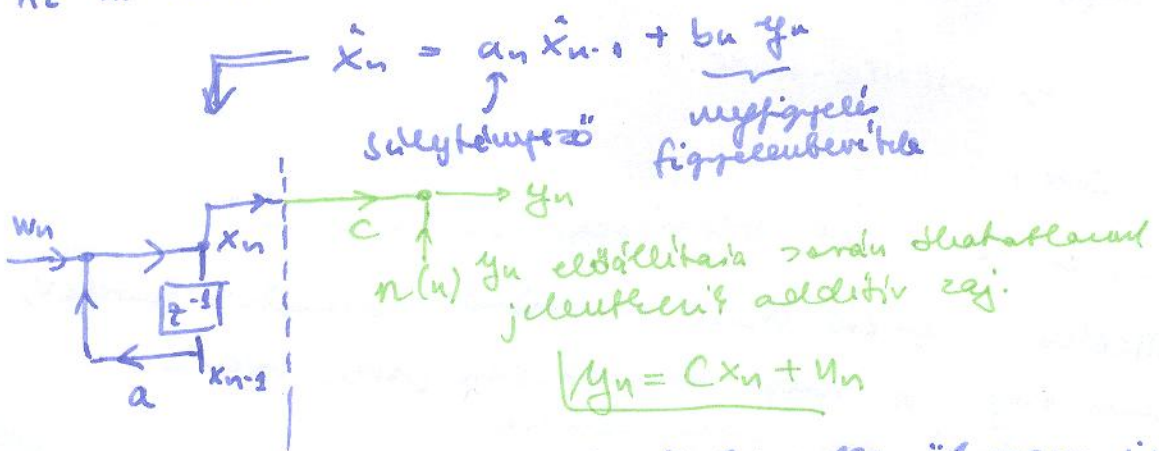 x̂n = an x̂n-1 + bn yn
súlytényező
megfigyelés
figyelembevétele
wn
xn
c
yn
z⁻¹
xn-1
a
n(n) yn előállítása során óhatatlanul
jelentkező additív zaj.
yn = Cxn + nn